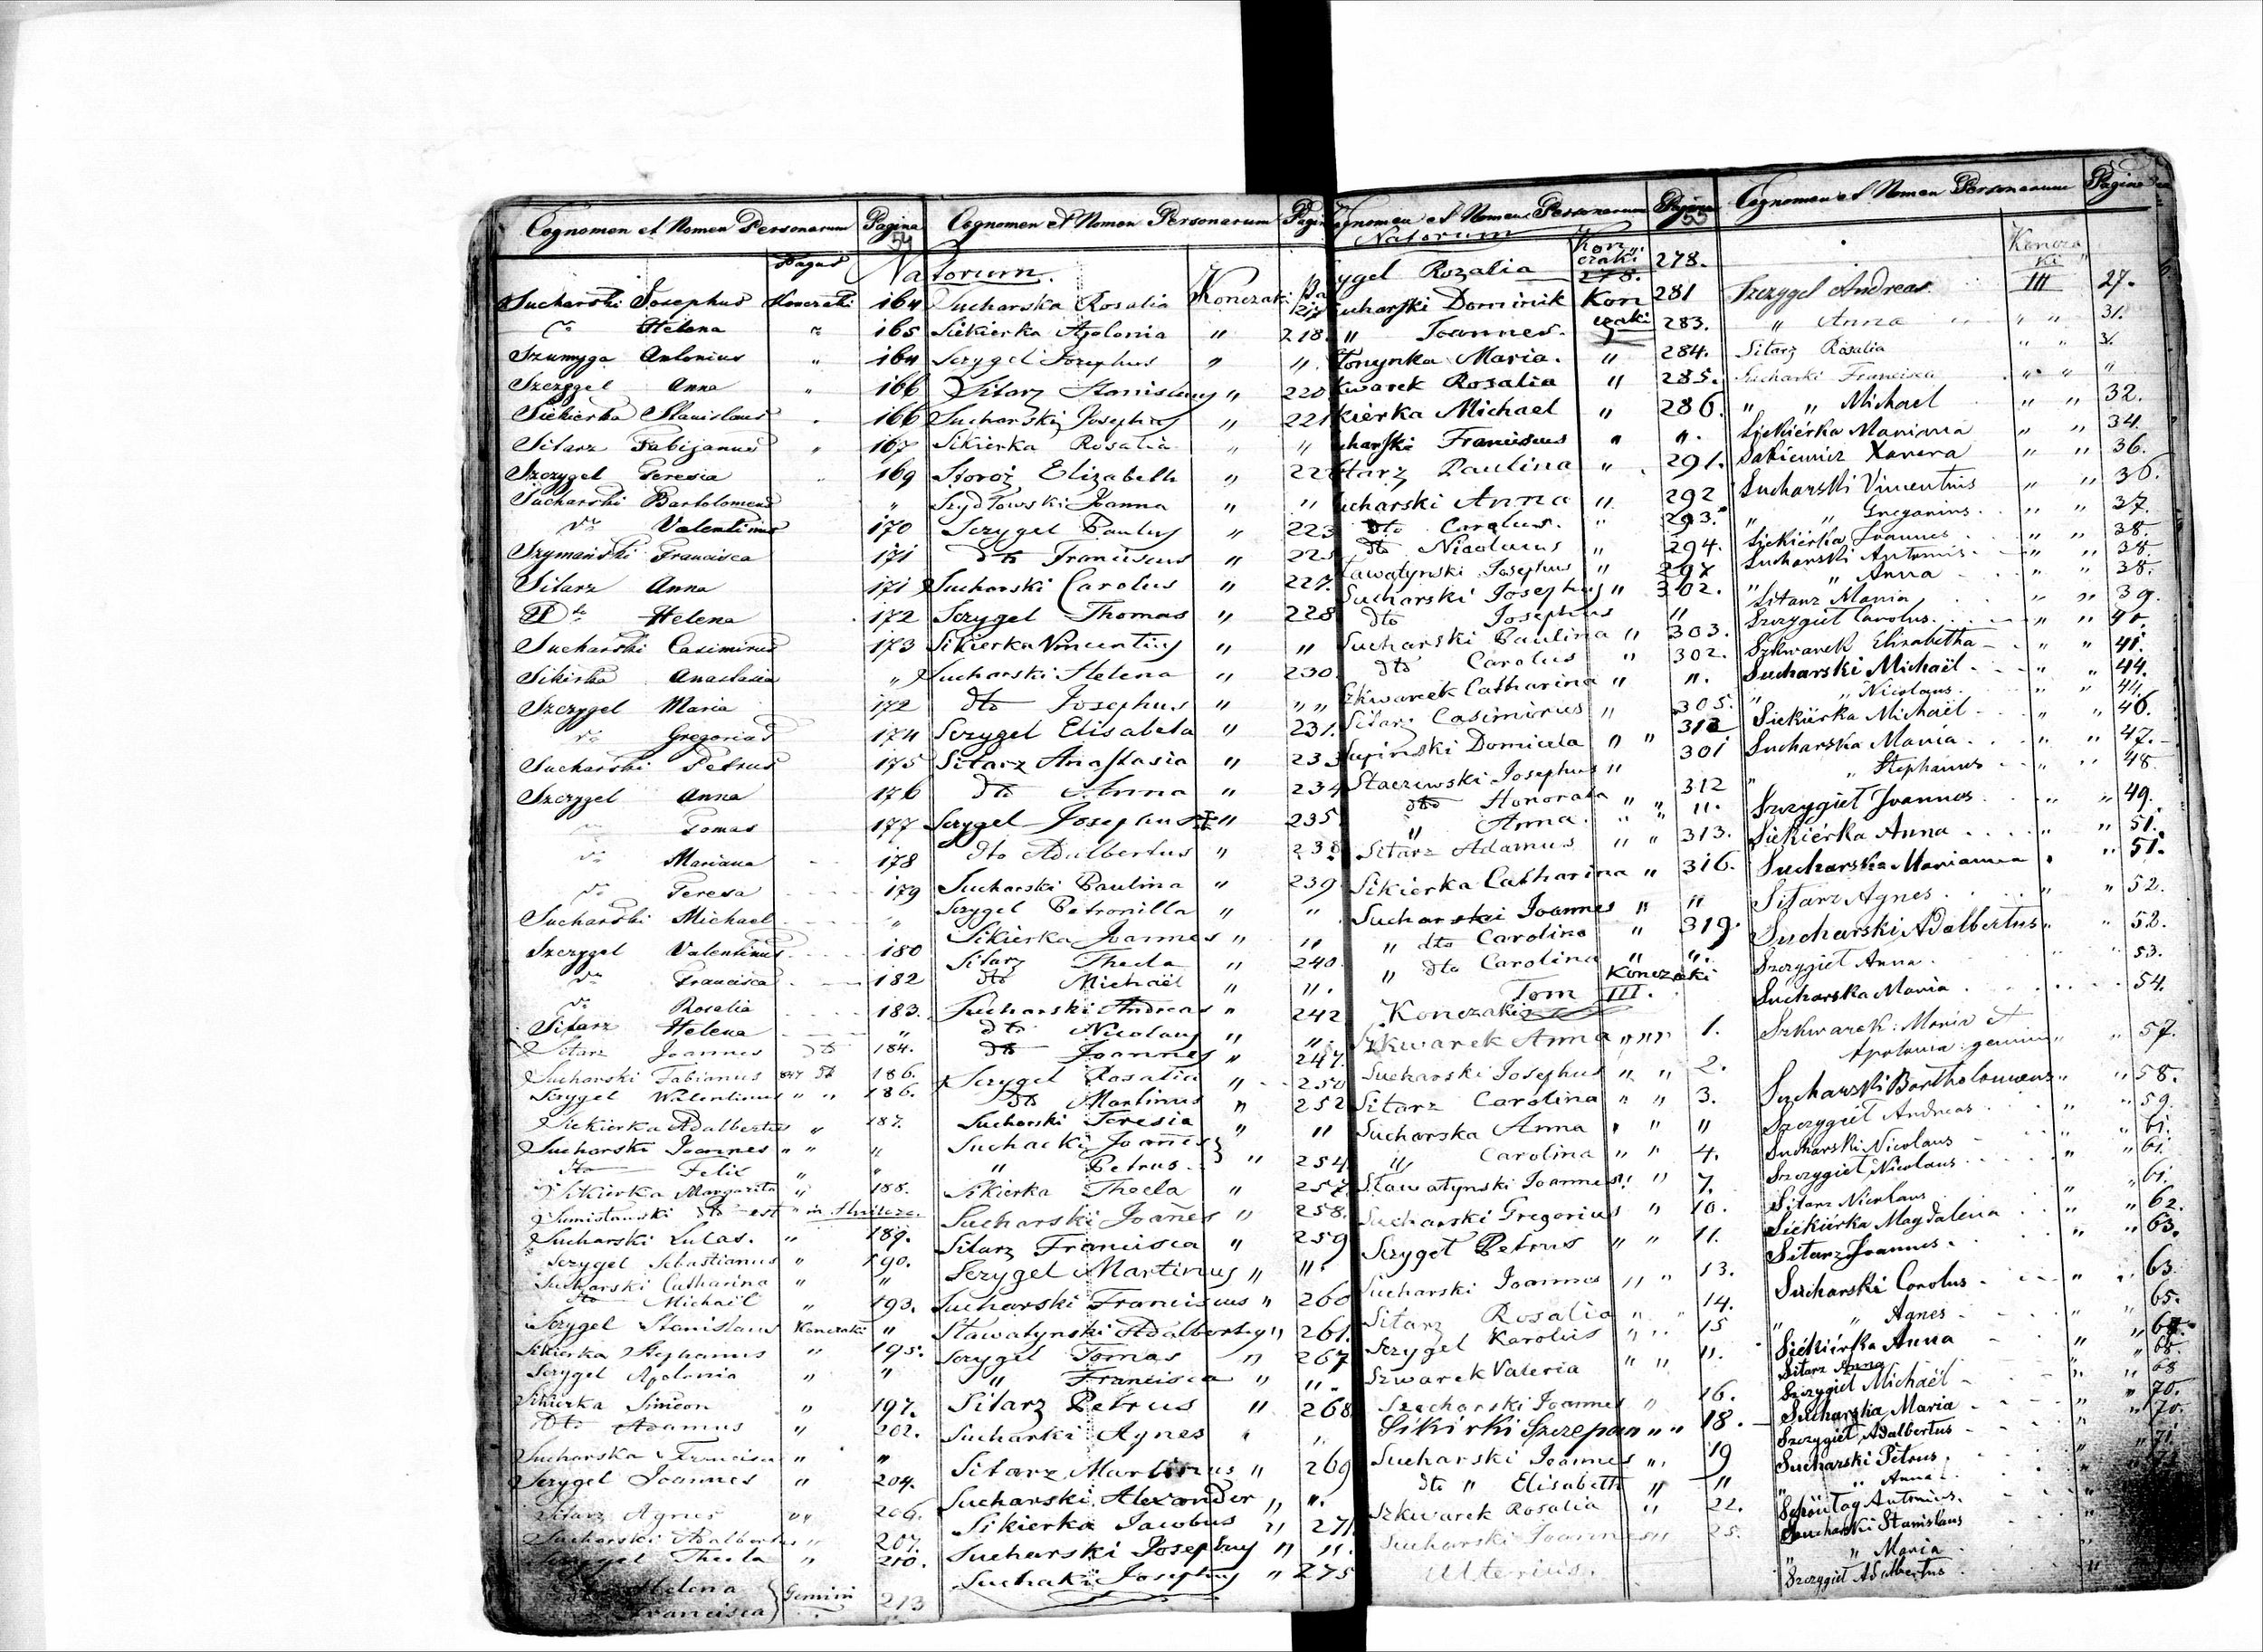 Cognomen et Nomen Personarum Pagina
54
Pagus Natorum.
Sucharski Josephus Konczaki 164
dto Helena " 165
Szumyga Antonius " 164
Szczygel Anna " 166
Siekierka Stanislaus 166
Sitarz Fabijanus " 167
Szczygel Teresia 169
Sucharski Bartolomeus "
dto Valentinus 170
Szymański Francisca 171
Sitarz Anna 171
dto Helena 172
Sucharski Casimirus 173
Sikirka Anastasia "
Szczygel Maria 172
dto Gregorius 174
Sucharski Petrus 175
Szczygel Anna 176
Tomas 177
dto Mariana 178
dto Teresa 179
Sucharski Michael "
Szczygel Valentinus 180
dto Francisca 182
dto Rosalia 183.
Sitarz Helena "
Sitarz Joannes dto 184.
Sucharski Fabianus 847 dto 186.
Sczygel Walentinus " " 186.
Siekierka Adalbertus " 187.
Sucharski Joannes " " "
dto Felix " "
Sikierka Margareta " 188.
dto est in
Sucharski Lucas. " 189.
Sczygel Sebastianus " 190.
Sucharski Catharina " "
dto Michaël " 193.
Sczygel Stanislaus Konczaki "
Sikierka Stephanus " 195.
Sczygel Apolonia " "
Sikierka Simeon " 197.
Dto Adamus " 202.
Sucharska Francisca " "
Sczygel Joannes " 204.
Sitarz Agnes " " 206.
Sucharski Adalbertus " 207.
Sczygel Thecla " 210.
Helena } Gemini 213
Francisca }
Cognomen et Nomen Personarum
Sucharska Rosalia Konczaki
Siekierka Apolonia " 218.
Sczygel Josephus " "
Sitarz Stanislaus " 220
Sucharski Josephus " 221
Sikierka Rosalia " "
Storoż Elizabeth "
Szydłowski Joanna " "
Sczygel Paulus " 223
dto Franciscus "
Sucharski Carolus " 227.
Sczygel Thomas " 228
Sikierka Vincentius " "
Sucharski Helena " 230
dto Josephus " "
Sczygel Elisabeta " 231.
Sitarz Anastasia " 233
dto Anna " 234
Sczygel Josephus " 235
dto Adalbertus " 238
Sucharski Paulina " 239
Sczygel Petronilla " "
Sikierka Joannes " "
Sitarz Thecla " 240
dto Michaël " ".
Sucharski Andreas " 242
dto Nicolaus " ".
dto Joannes " 247.
Sczygel Rosalia " 250
dto Martinus " 252
Sucharski Teresia " "
Suchacki Joanes }
" Petrus } " 254
Sikierka Thecla " 257
Sucharski Joanes " 258.
Sitarz Francisca " 259
Sczygel Martinus " ".
Sucharski Franciscus " 260
Stawatynski Adalbertus " 261.
Sczygel Tomas " 267
" Francisca " ".
Sitarz Petrus " 268
Sucharki Agnes " "
Sitarz Martinus " 269
Sucharski Alexander " ".
Sikierka Jacobus " 271
Sucharski Josephus " ".
Suchaki Josephus " 275
Cognomen et Nomen Personarum Pagina
55
Natorum Konczaki
ygel Rozalia 278. 278.
ucharski Dominik Konczaki 281
" Joannes. 283.
Tonynka Maria. " 284.
kwarek Rosalia " 285.
kierka Michael " 286.
charski Franciscus " ".
tarz Paulina " 291.
ucharski Anna " 292
dto Carolus. " 293.
dto Nicolaus " 294.
tawatynski Josephus " 297
Sucharski Josephus " 302.
dto Josephus "
Sucharski Paulina " 303.
dto Carolus " 302.
Szkwarek Catharina " ".
Sitarz Casimirus " 305.
Supinski Domicela " " 312
Staczewski Josephus " 301
dto Honorata " " 312
" Anna. " " ".
Sitarz Adamus " " 313.
Sikierka Catharina " 316.
Sucharski Joannes " "
" dto Carolina " 319.
" dto Carolina " ".
Tom III. Konczaki
Konczaki
Szkwarek Anna " " " 1.
Sucharski Josephus " " 2.
Sitarz Carolina " " 3.
Sucharska Anna " " "
" Carolina " " 4.
Stawatynski Joannes " " 7.
Sucharski Gregorius " 10.
Sczygel Petrus " " 11.
Sucharski Joannes " " 13.
Sitarz Rosalia " " 14.
Sczygel Karolus " " 15
Szwarek Valeria " " 11.
Szecharski Joannes " 16.
Sikirki Szczepan " " 18.
Sucharski Joannes " 19
dto " Elisabeth " "
Szkwarek Rosalia " 22.
Sucharski Joannes " 25.
Ulterius.
Cognomen et Nomen Personarum Pagina
Konczaki
Szczygel Andreas III 27.
" Anna " " 31.
Sitarz Rosalia " " 31.
Sucharki Francisca " " "
" " Michael " " 32.
Siekiérka Marina " " 34.
Sakiewicz Xavera " " 36.
Sucharski Vincentius " " 36.
" " Gregorius " " 37.
Siekiérka Joannes " " 38.
Sucharski Antonius " " 38.
" " Anna " " 38.
Sitarz Maria " " 39.
Szczygieł Carolus " " 40.
Szkwarek Elisabetha " " 41.
Sucharski Michaël " " 44.
" " Nicolaus. " " 44.
Siekiérka Michaël " " 46.
Sucharska Maria " " 47.
" " Stephanus " " 48
Szczygieł Joannes " " 49.
Siekiérka Anna " " 51.
Sucharska Marianna " " 51.
Sitarz Agnes " " 52.
Sucharski Adalbertus " " 52.
Szczygieł Anna " " 53.
Sucharska Maria 54.
Szkwarek: Maria et
Apolonia: gemini " " 57.
Sucharski Bartholomeus " " 58.
Szczygieł Andreas " " 59.
Sucharski Nicolaus " " 61.
Szczygieł Nicolaus " " 61.
Sitarz Nicolaus " " 61.
Siekiérka Magdalena " " 62.
Sitarz Joannes " " 63.
Sucharski Carolus " " 63.
" " Agnes " " 65.
Siékiérka Anna " "
Sitarz Anna " " 68.
Szczygieł Michaël " " 68
Sucharska Maria " " 70.
Szczygieł Adalbertus " " 70.
Sucharski Petrus "
" " Anna "
Antonius.
Sucharski Stanislaus
" " Maria
Szczygieł Adalbertus "